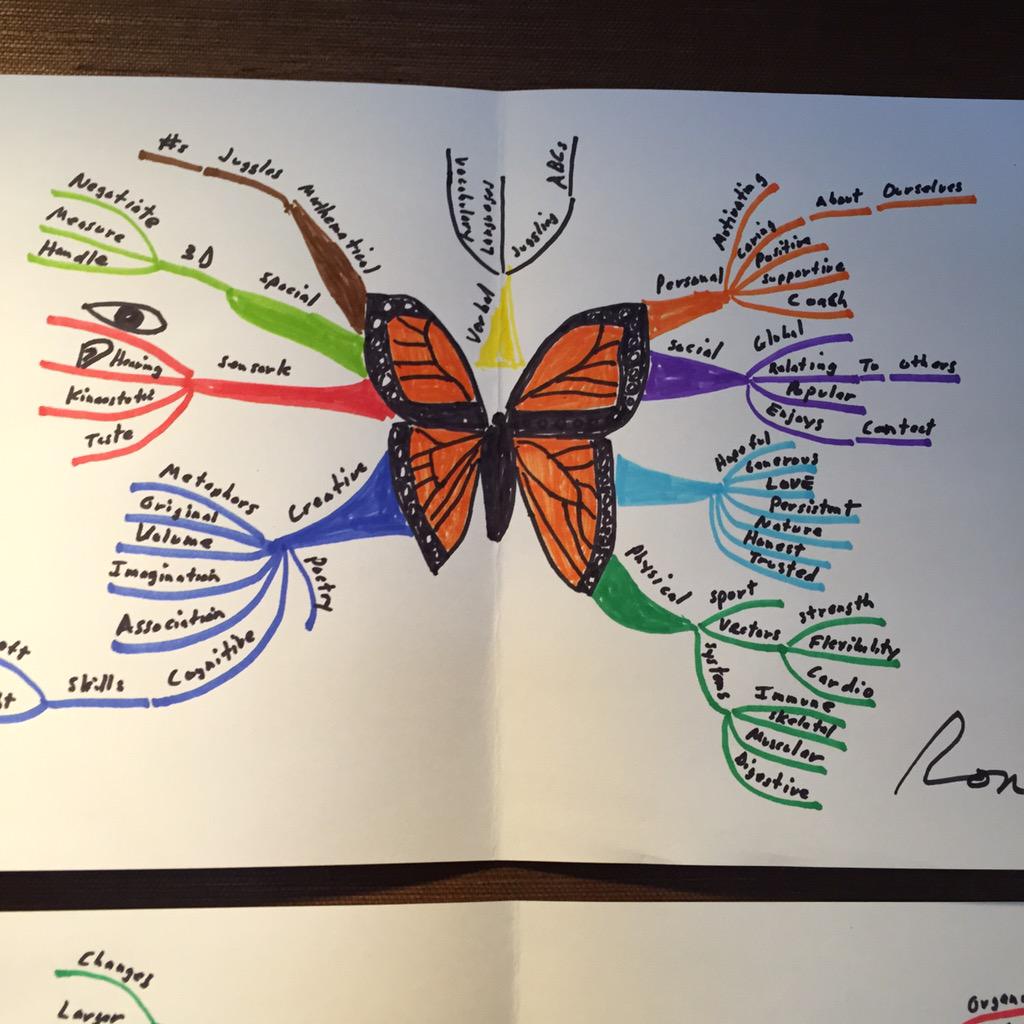 #s
Juggles
Mathematical
Vocabulary
Language
Juggling
ABCs
Verbal
Negotiate
Measure
Handle
3D
Special
Hearing
Taste
Metaphors
Original
Volume
Imagination
Association
Cognitive
Skills
Poetry
Creative
Motivating
Caring
About
Ourselves
Positive
Supportive
Coach
Personal
Social
Global
Relating
To
others
Popular
Enjoys
Contact
Hopeful
Generous
LOVE
Persistent
Nature
Honest
Trusted
Physical
sport
Vectors
strength
Flexibility
Cardio
Systems
Immune
Skeletal
Muscular
Digestive
Ron
Changes
Larger